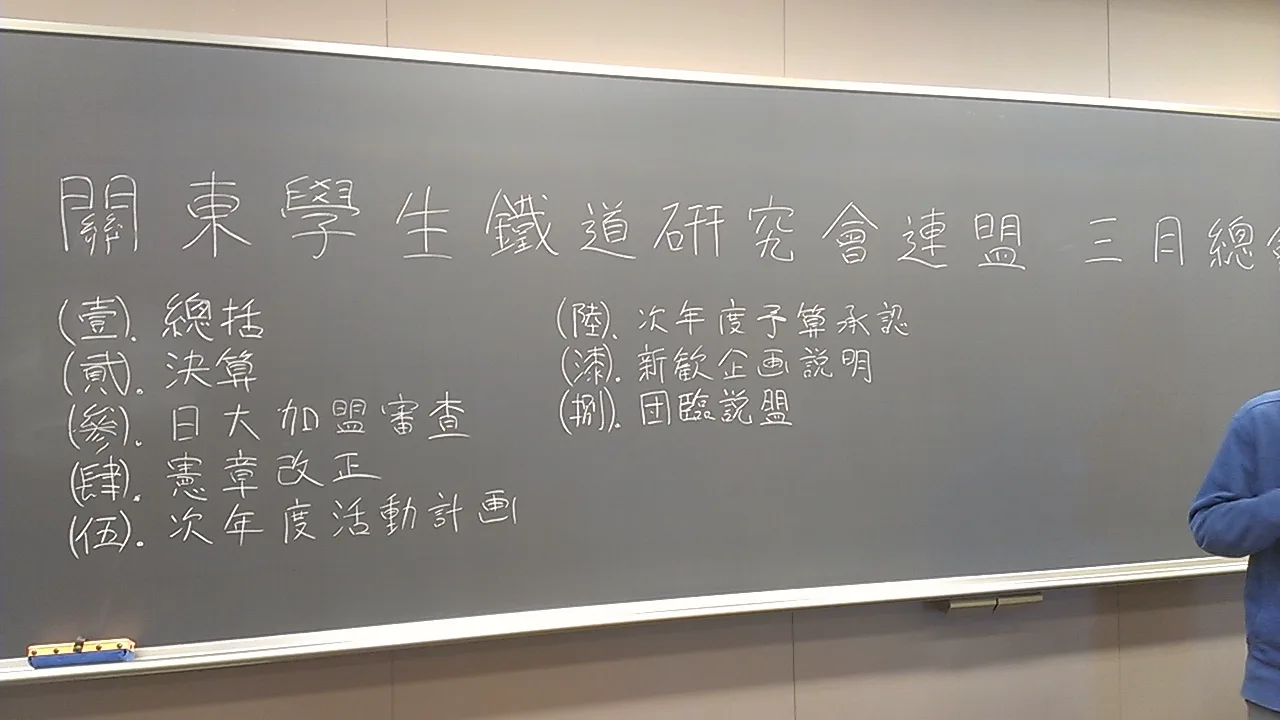 關東學生鐵道研究會連盟 三月總
(壹). 總括
(貳). 決算
(參). 日大加盟審査
(肆). 憲章改正
(伍). 次年度活動計画
(陸). 次年度予算承認
(漆). 新歓企画説明
(捌). 団臨説盟